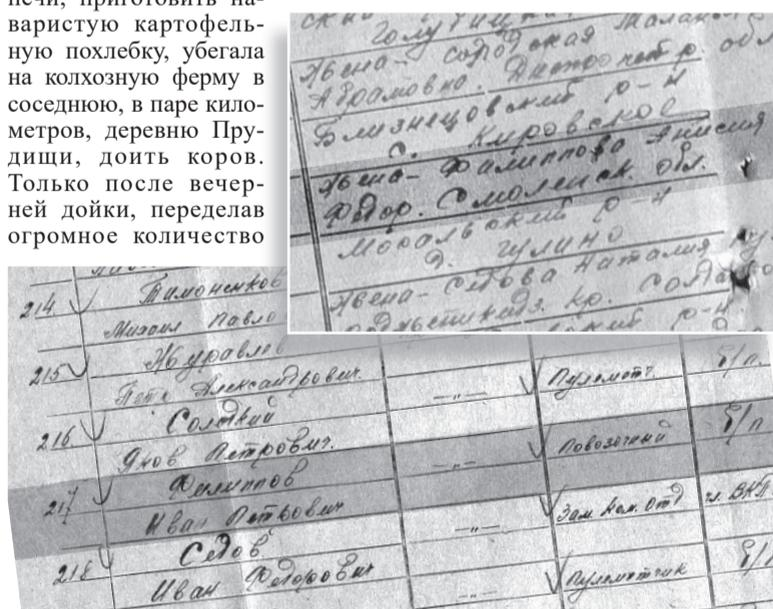 печи, приготовить на-
варистую картофель-
ную похлебку, убегала
на колхозную ферму в
соседнюю, в паре кило-
метров, деревню Пру-
дищи, доить коров.
Только после вечер-
ней дойки, переделав
огромное количество
Жена - Маланья
Абрамовна. обл
Близнецовский р-н
с. Кировское
Жена - Филиппова Анисия
Федор. Смоленск. обл.
Мосальский р-н
д. Гулино
Жена - Седова Наталия
р-н
214 Тимоненков
Михаил Павло
215 Журавлев
Петр Александрович. —„— Пулеметч. б/п.
216 Солдкий
Яков Петрович. —„— Повозочный б/п
217 Филиппов
Иван Петрович —„— Зам. Ком. Отд чл. ВКП
218 Седов
Иван Федорович —„— Пулеметчик б/п